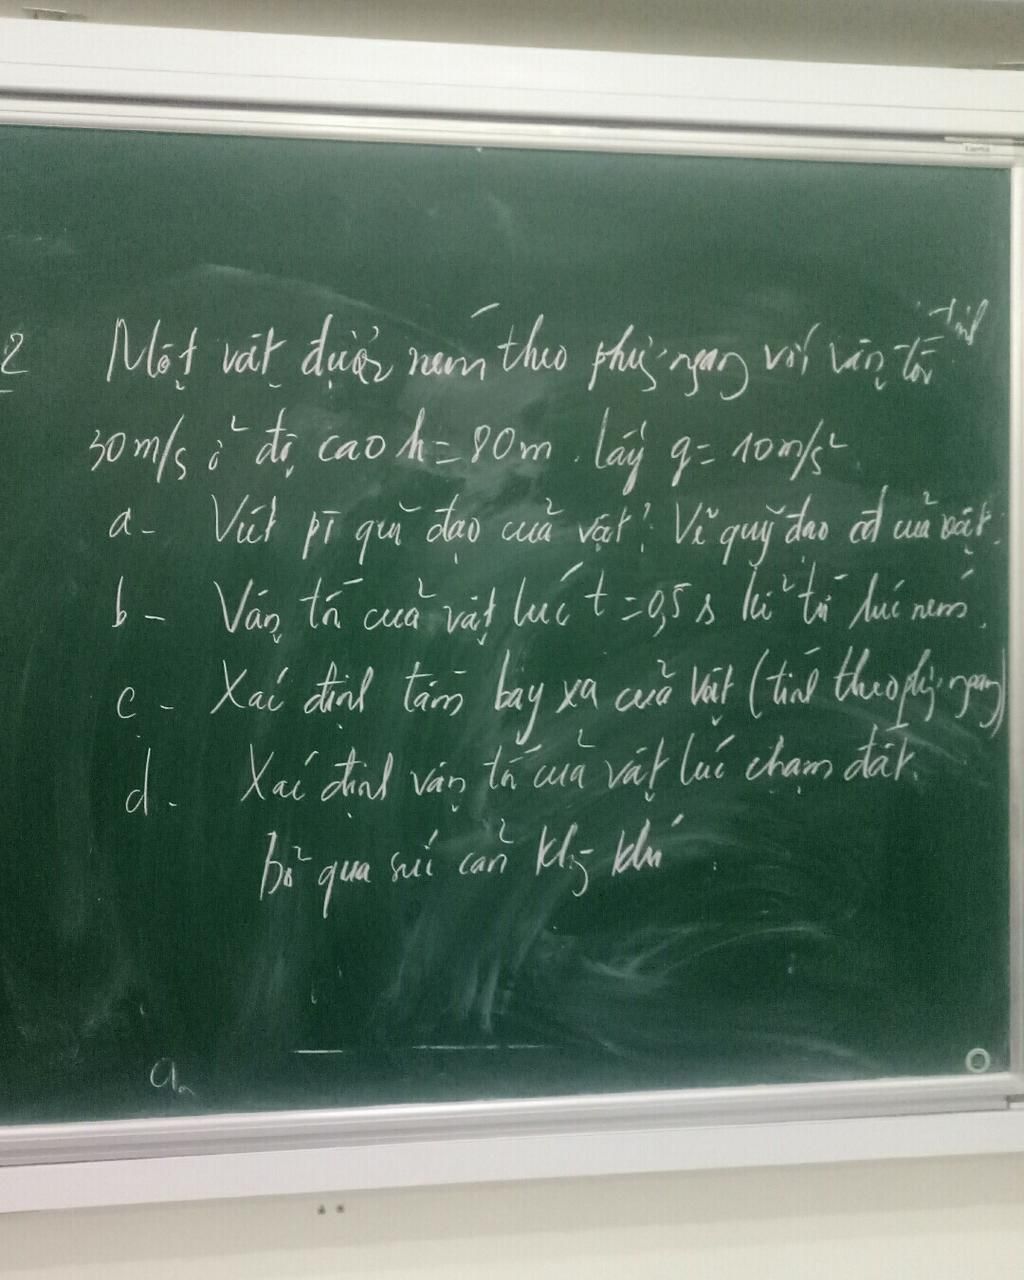 2 Một vật được ném theo phg ngang với vận tốc
30m/s ở độ cao h = 80m. lấy g = 10m/s²
a - Viết pt quĩ đạo của vật? Vẽ quỹ đạo cđ của vật.
b - Vận tốc của vật lúc t = 0,5 s kể từ lúc ném.
c - Xác định tầm bay xa của vật (tính theo phg ngang)
d - Xác định vận tốc của vật lúc chạm đất.
bỏ qua sức cản khg khí
a,